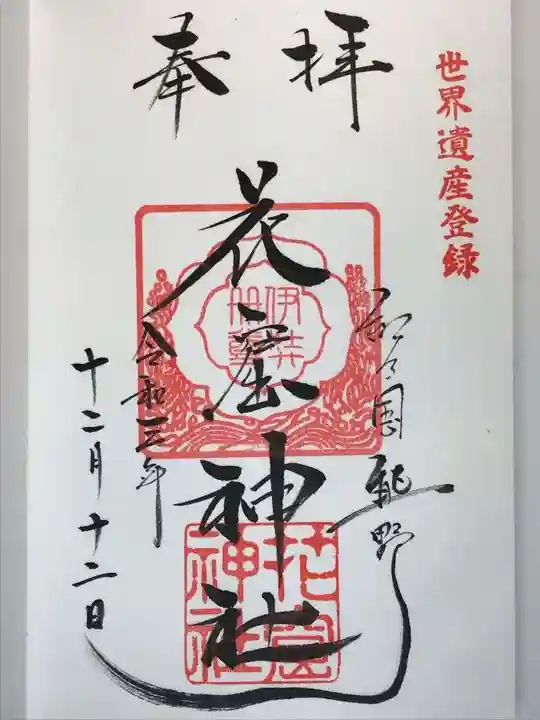 世界遺産登録
奉拝
紀の国 熊野
花窟神社
伊弉冊尊
花窟神社
令和三年
十二月十二日